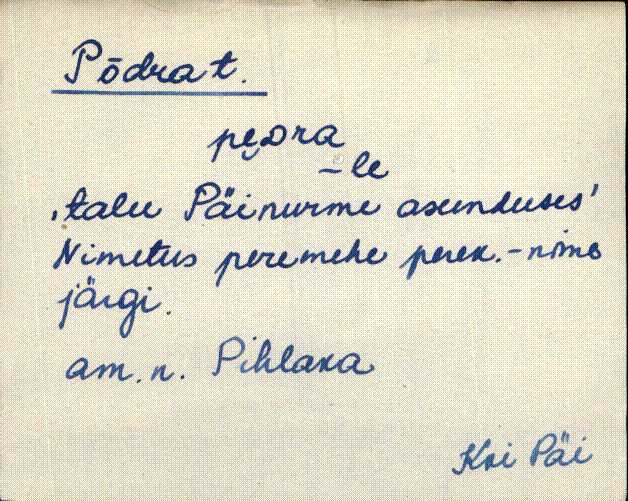 Põdra t.
pe̮ᴅra
-le
'talu Päinurme asunduses'
Nimetus peremehe perek.-nime
järgi.
am. n. Pihlaka
Koi Päi